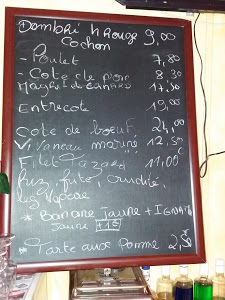 Dombré h Rouge 9,00
Cochon
- Poulet 7,80
- Cote de porc 8,30
Magret de canard 17,50
Entrecote 19,00
Cote de boeuf 24,00
Vivaneau mariné 12,50
Filet Tazard 11,00
Riz, frite, crudité,
leg vapeur
* Banane Jaune + IGNAME
Jaune +1€
* Tarte aux Pomme 2,5€